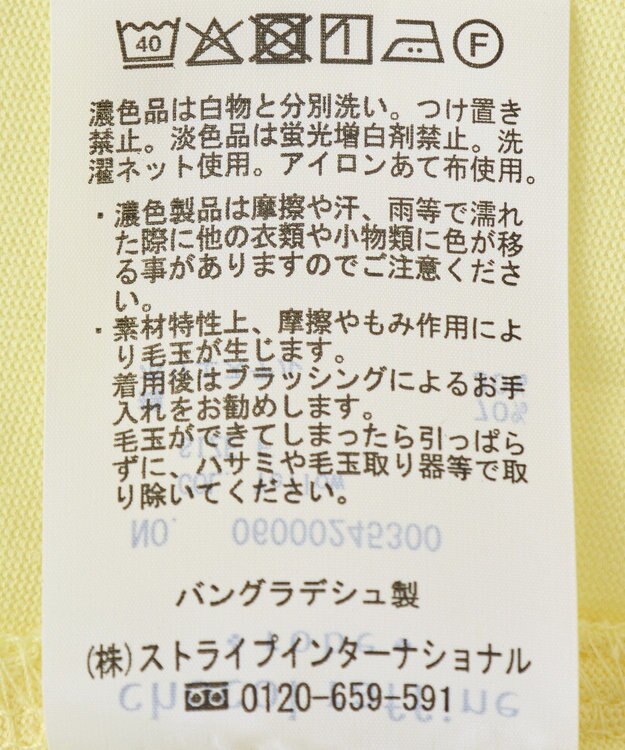 40 F
濃色品は白物と分別洗い。つけ置き
禁止。淡色品は蛍光増白剤禁止。洗
濯ネット使用。アイロンあて布使用。
・濃色製品は摩擦や汗、雨等で濡れ
た際に他の衣類や小物類に色が移
る事がありますのでご注意くださ
い。
・素材特性上、摩擦やもみ作用によ
り毛玉が生じます。
着用後はブラッシングによるお手
入れをお勧めします。
毛玉ができてしまったら引っぱら
ずに、ハサミや毛玉取り器等で取
り除いてください。
70%
NO. 06000245300
バングラデシュ製
(株)ストライプインターナショナル
0120-659-591